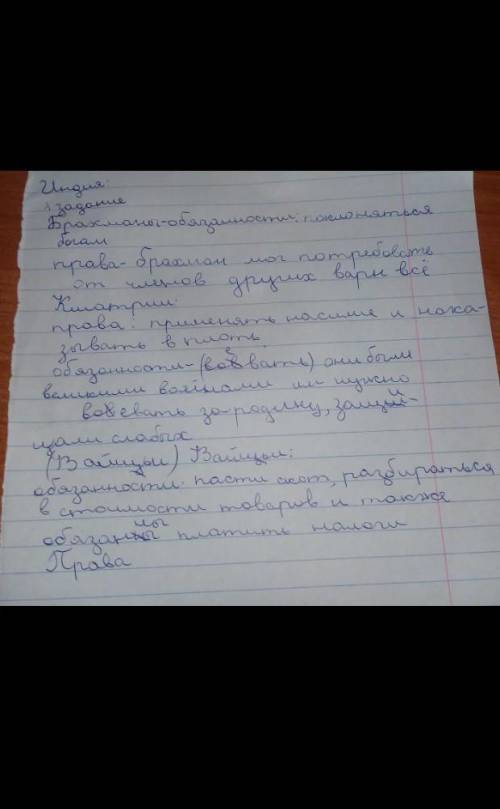 Индия:
1 задание
Брахманы-обязанности: поклоняться
богам
права-брахман мог потребовать
от членов других варн всё
Кшатрии:
права: применять насилие и нака-
зывать в плоть
обязонности-(вовать) они были
великими воинами им нужно
воевать за-родину, защи-
щали слабых
(Вайщьи) Вайщьи:
обязанности: пасти скот, разбираться
в стоимости товаров и также
обязанны платить налоги
Права